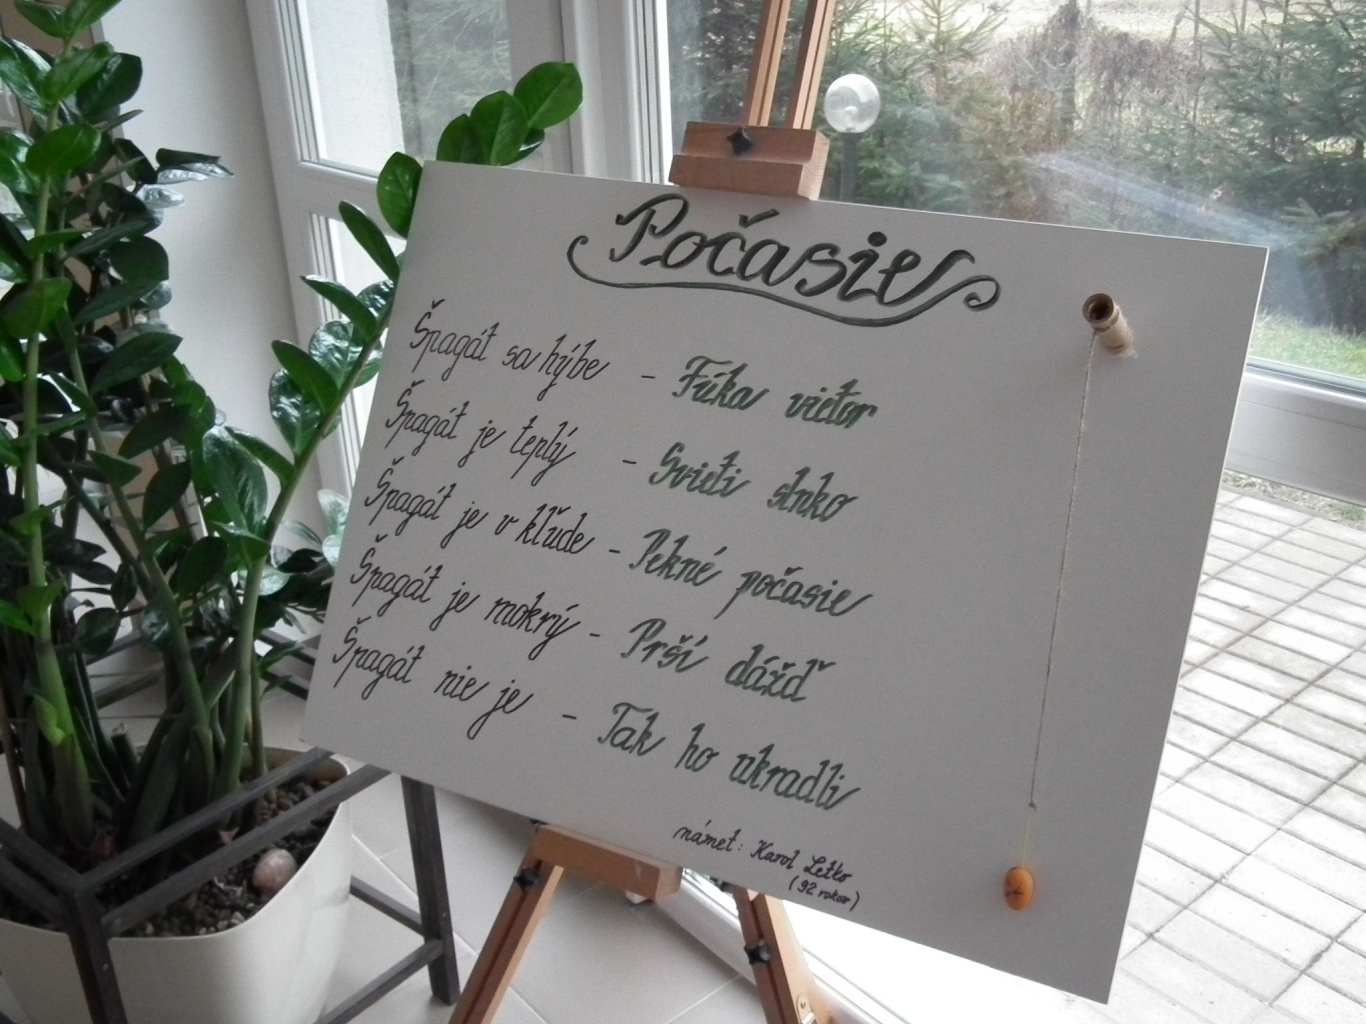 Počasie
Špagát sa hýbe - Fúka vietor
Špagát je teplý - Svieti slnko
Špagát je v kľude - Pekné počasie
Špagát je mokrý - Prší dážď
Špagát nie je - Tak ho ukradli
námet: Karol Letko
(92 rokov)